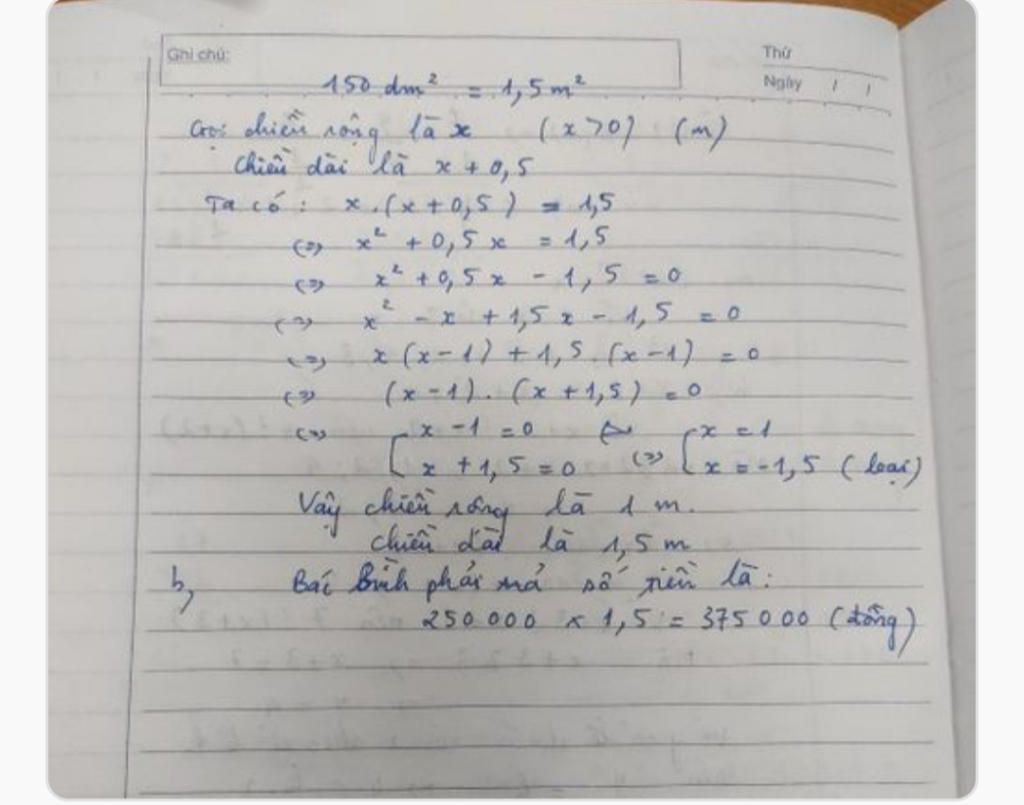 Ghi chú:
Thứ
Ngày / /
150 dm² = 1,5 m²
Gọi chiều rộng là x (x > 0) (m)
Chiều dài là x + 0,5
Ta có: x.(x + 0,5) = 1,5
<=> x² + 0,5x = 1,5
<=> x² + 0,5x - 1,5 = 0
<=> x² - x + 1,5x - 1,5 = 0
<=> x(x-1) + 1,5.(x-1) = 0
<=> (x-1).(x+1,5) = 0
<=> [x - 1 = 0 [x = 1
x + 1,5 = 0 <=> x = -1,5 (loại)
Vậy chiều rộng là 1 m.
chiều dài là 1,5 m
b, Bác Bình phải trả số tiền là:
250 000 x 1,5 = 375 000 (đồng)